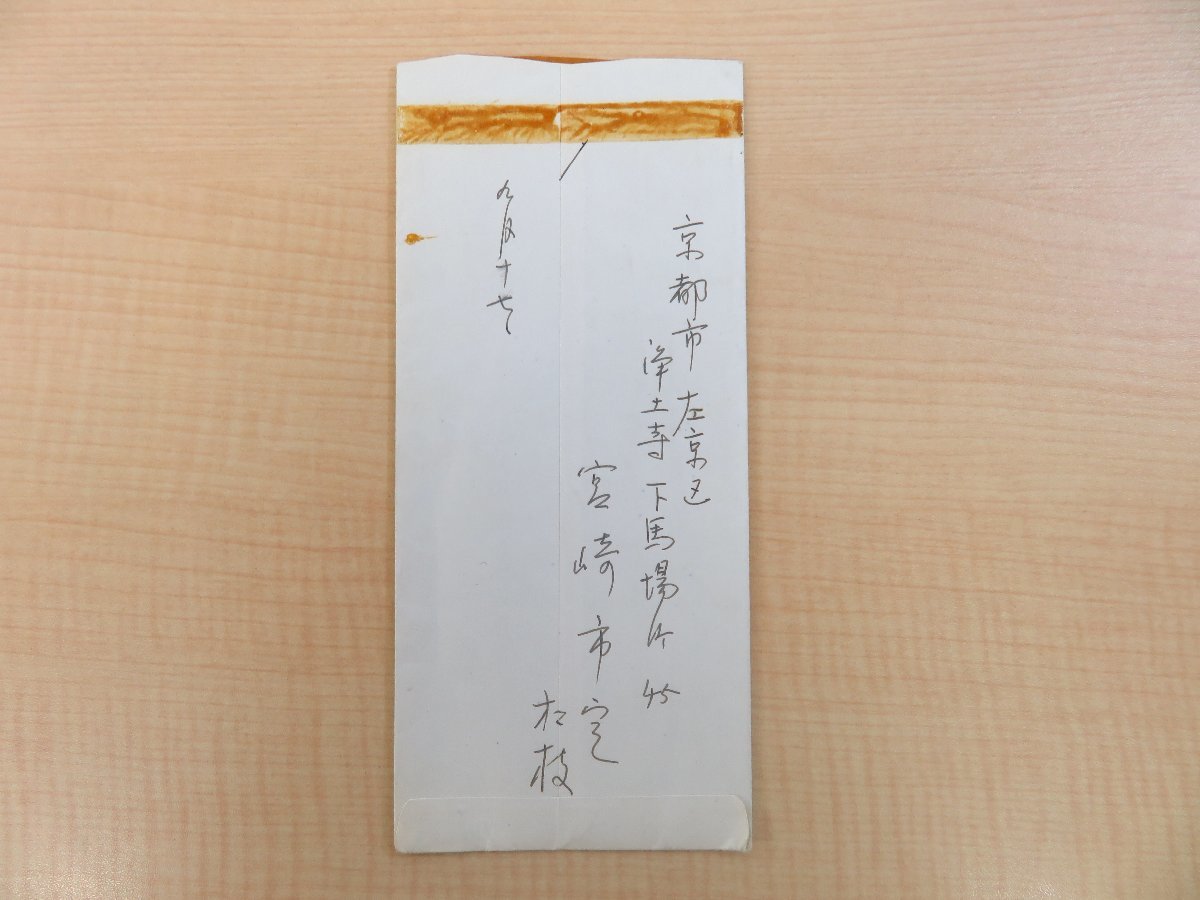 京都市左京区
浄土寺下馬場町 45
宮崎市定
松枝
九月十七日